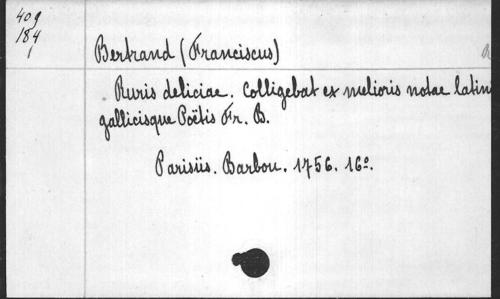 409
184
1
Bertrand (Franciscus)
Ruris deliciae. Colligebat ex melioris notae latin
gallicisque Poëtis Fr. B.
Parisiis. Barbou. 1756. 16º.